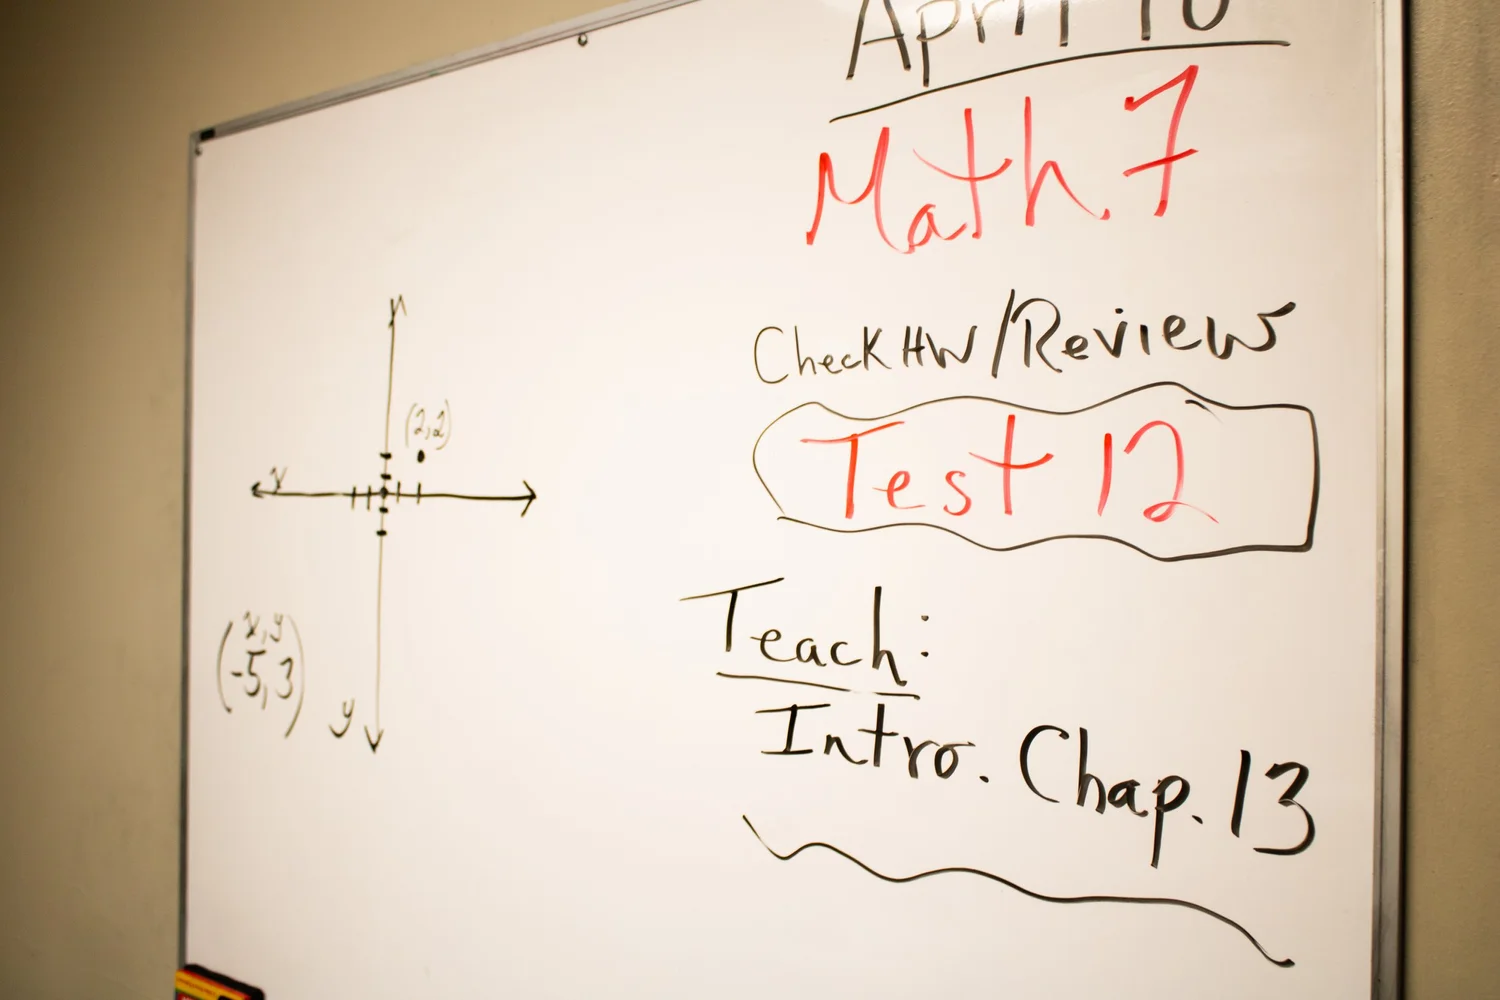 April 10
Math 7
Check HW/Review
Test 12
Teach:
Intro. Chap. 13
(2,2)
x
(x,y
-5,3)
y